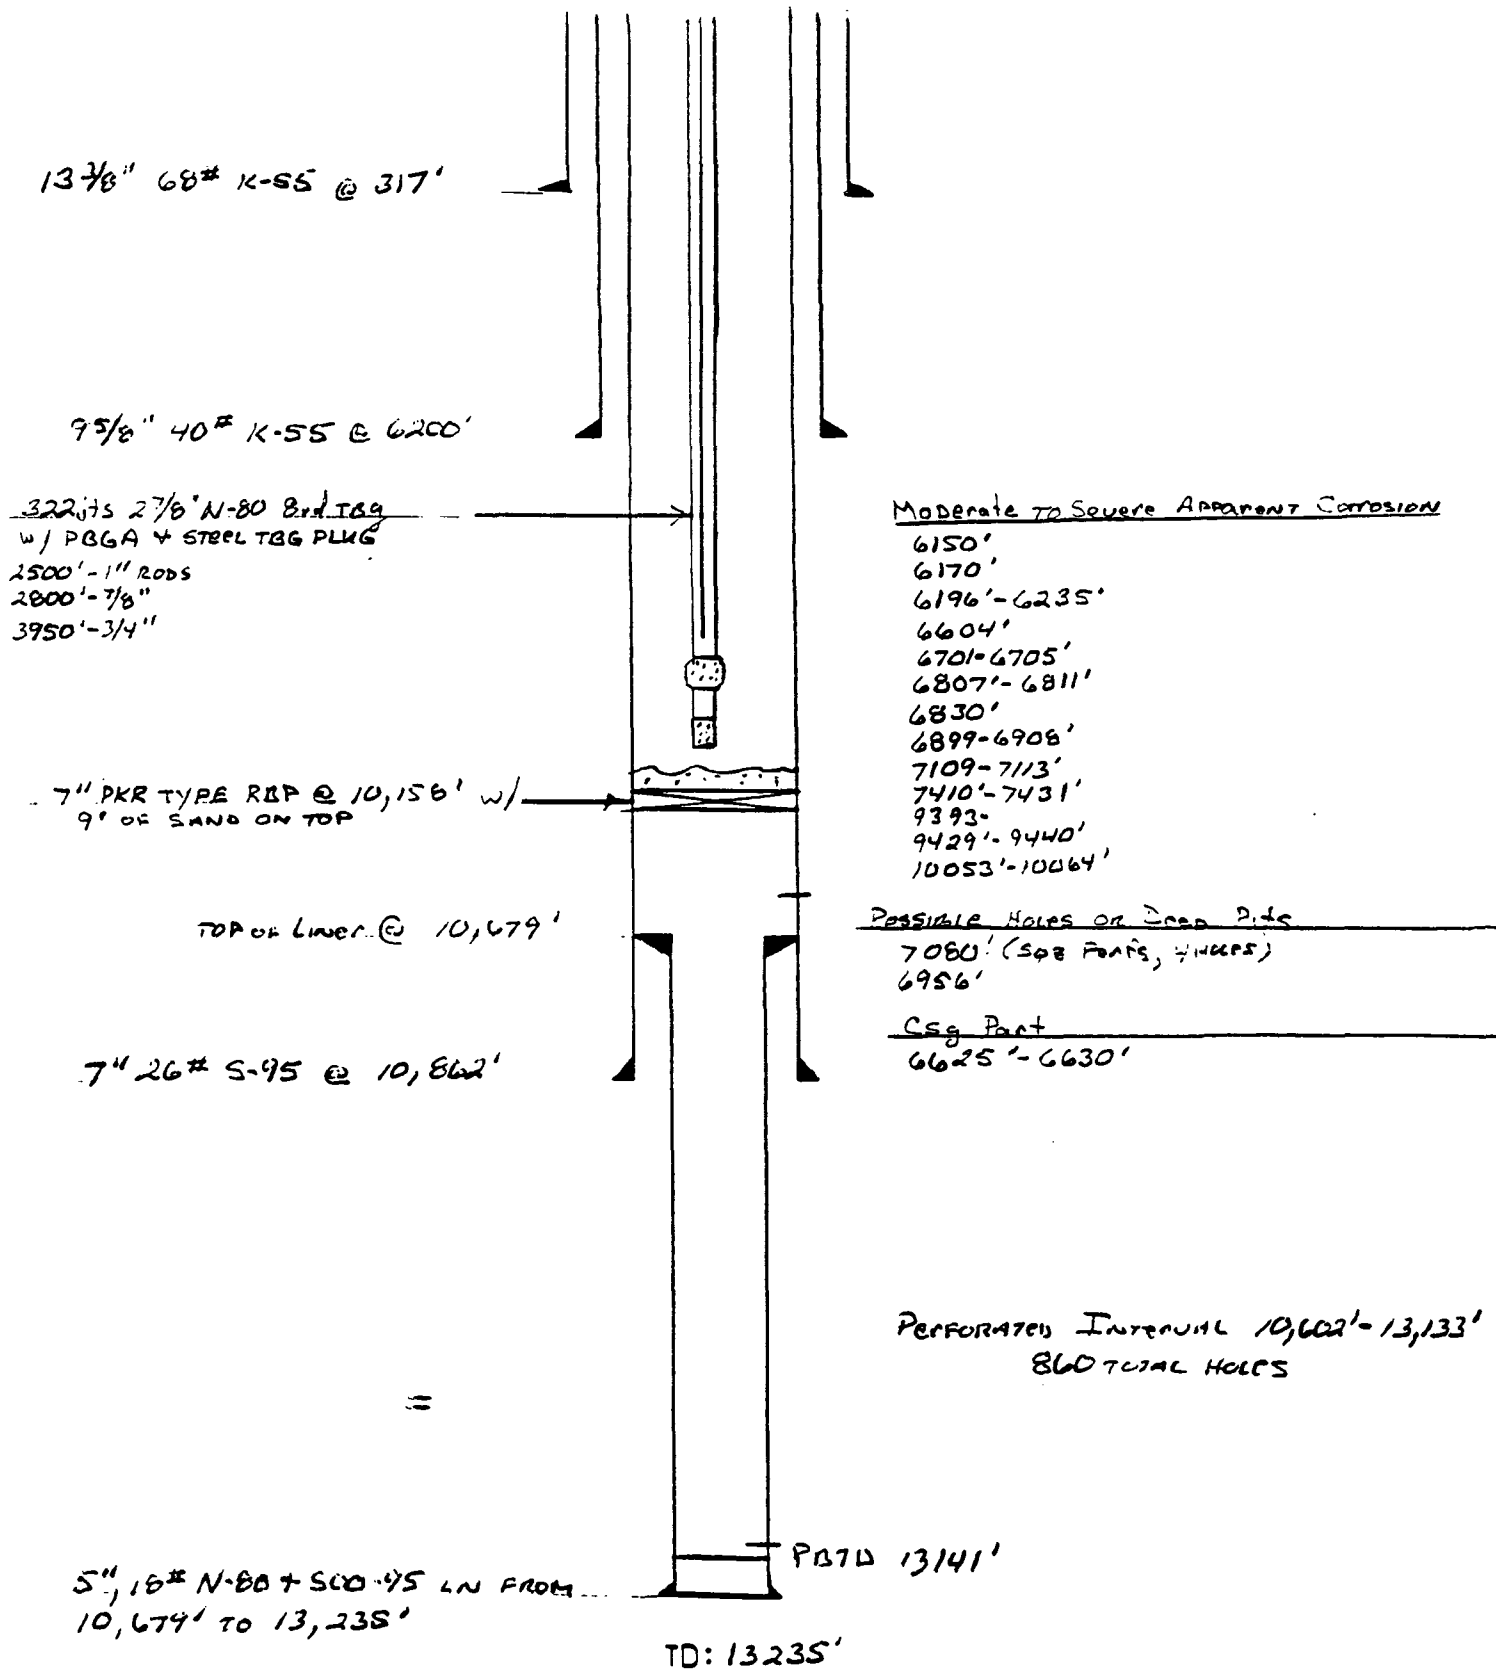 13 3/8" 68# K-55 @ 317'
9 5/8" 40# K-55 @ 6200'
322 jts 2 7/8" N-80 8rd TBG
w/ PBGA & STEEL TBG PLUG
2500'-1" RODS
2800'-7/8"
3950'-3/4"
7" PKR TYPE RBP @ 10,158' w/
9' OF SAND ON TOP
TOP OF LINER @ 10,679'
7" 26# S-95 @ 10,862'
=
5", 18# N-80 + SOO-95 LN FROM
10,679' TO 13,235'
Moderate TO Severe APPARENT Corrosion
6150'
6170'
6196'-6235'
6604'
6701-6705'
6807'-6811'
6830'
6899-6908'
7109-7113'
7410'-7431'
9393-
9429'-9440'
10053'-10064'
POSSIBLE HOLES OR Deep Pits
7080' (SQZ Perfs, 4 HOLES)
6956'
Csg Part
6625'-6630'
PERFORATED INTERVAL 10,602'-13,133'
860 TOTAL HOLES
PBTD 13141'
TD: 13235'